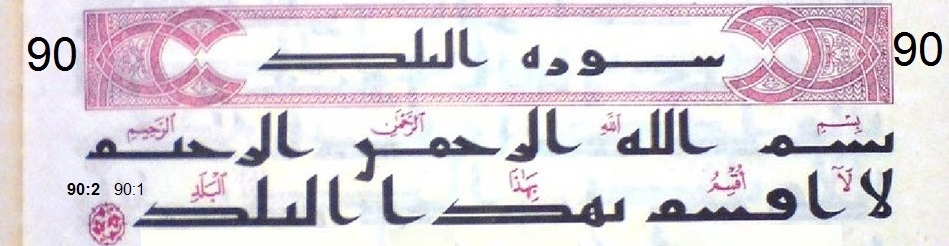 90 سوره البلد 90
بِسْمِ اللَّهِ الرَّحْمَٰنِ الرَّحِيمِ
بسم الله الرحمن الرحيم
لَآ أُقْسِمُ بِهَٰذَا الْبَلَدِ
لا اقسم بهذا البلد
90:2 90:1